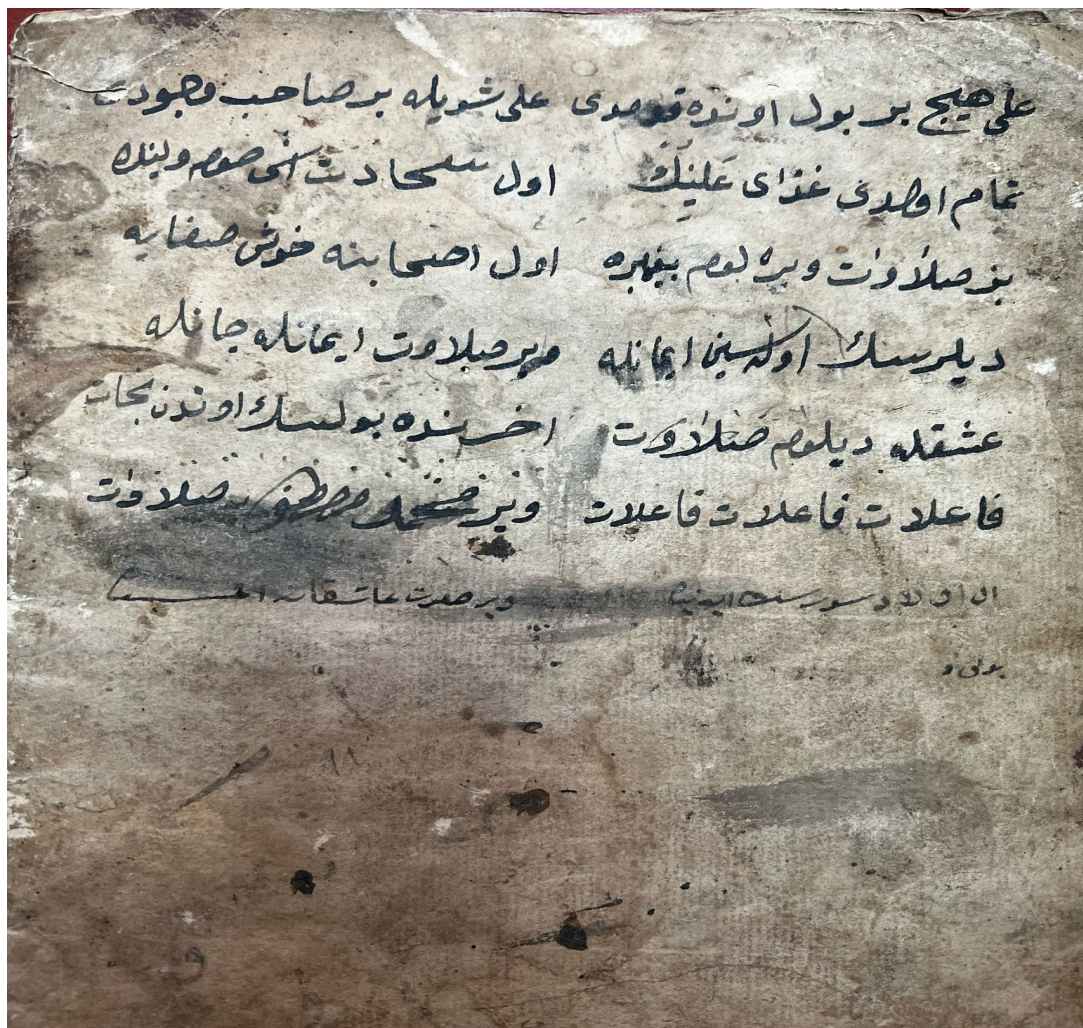 علی هیچ بر بول اونده قومدی علی شویله بر صاحب وجودت
تمام اولدی غذای علینك اول سعادت
بز صلاوات ویره لوم بیغمبره اول اصحابنه خوش صفایه
دیلرسك اوله سین ایمانله ویر صلاوت ایمانله جانله
عشقله دیلوم صلاوت اخرنده بولسك اوتدن نجات
فاعلات فاعلات فاعلات ویر محمد مصطفی یه صلاوات
ال اولاد ویر صلوت عاشقانه
بولی و
١١